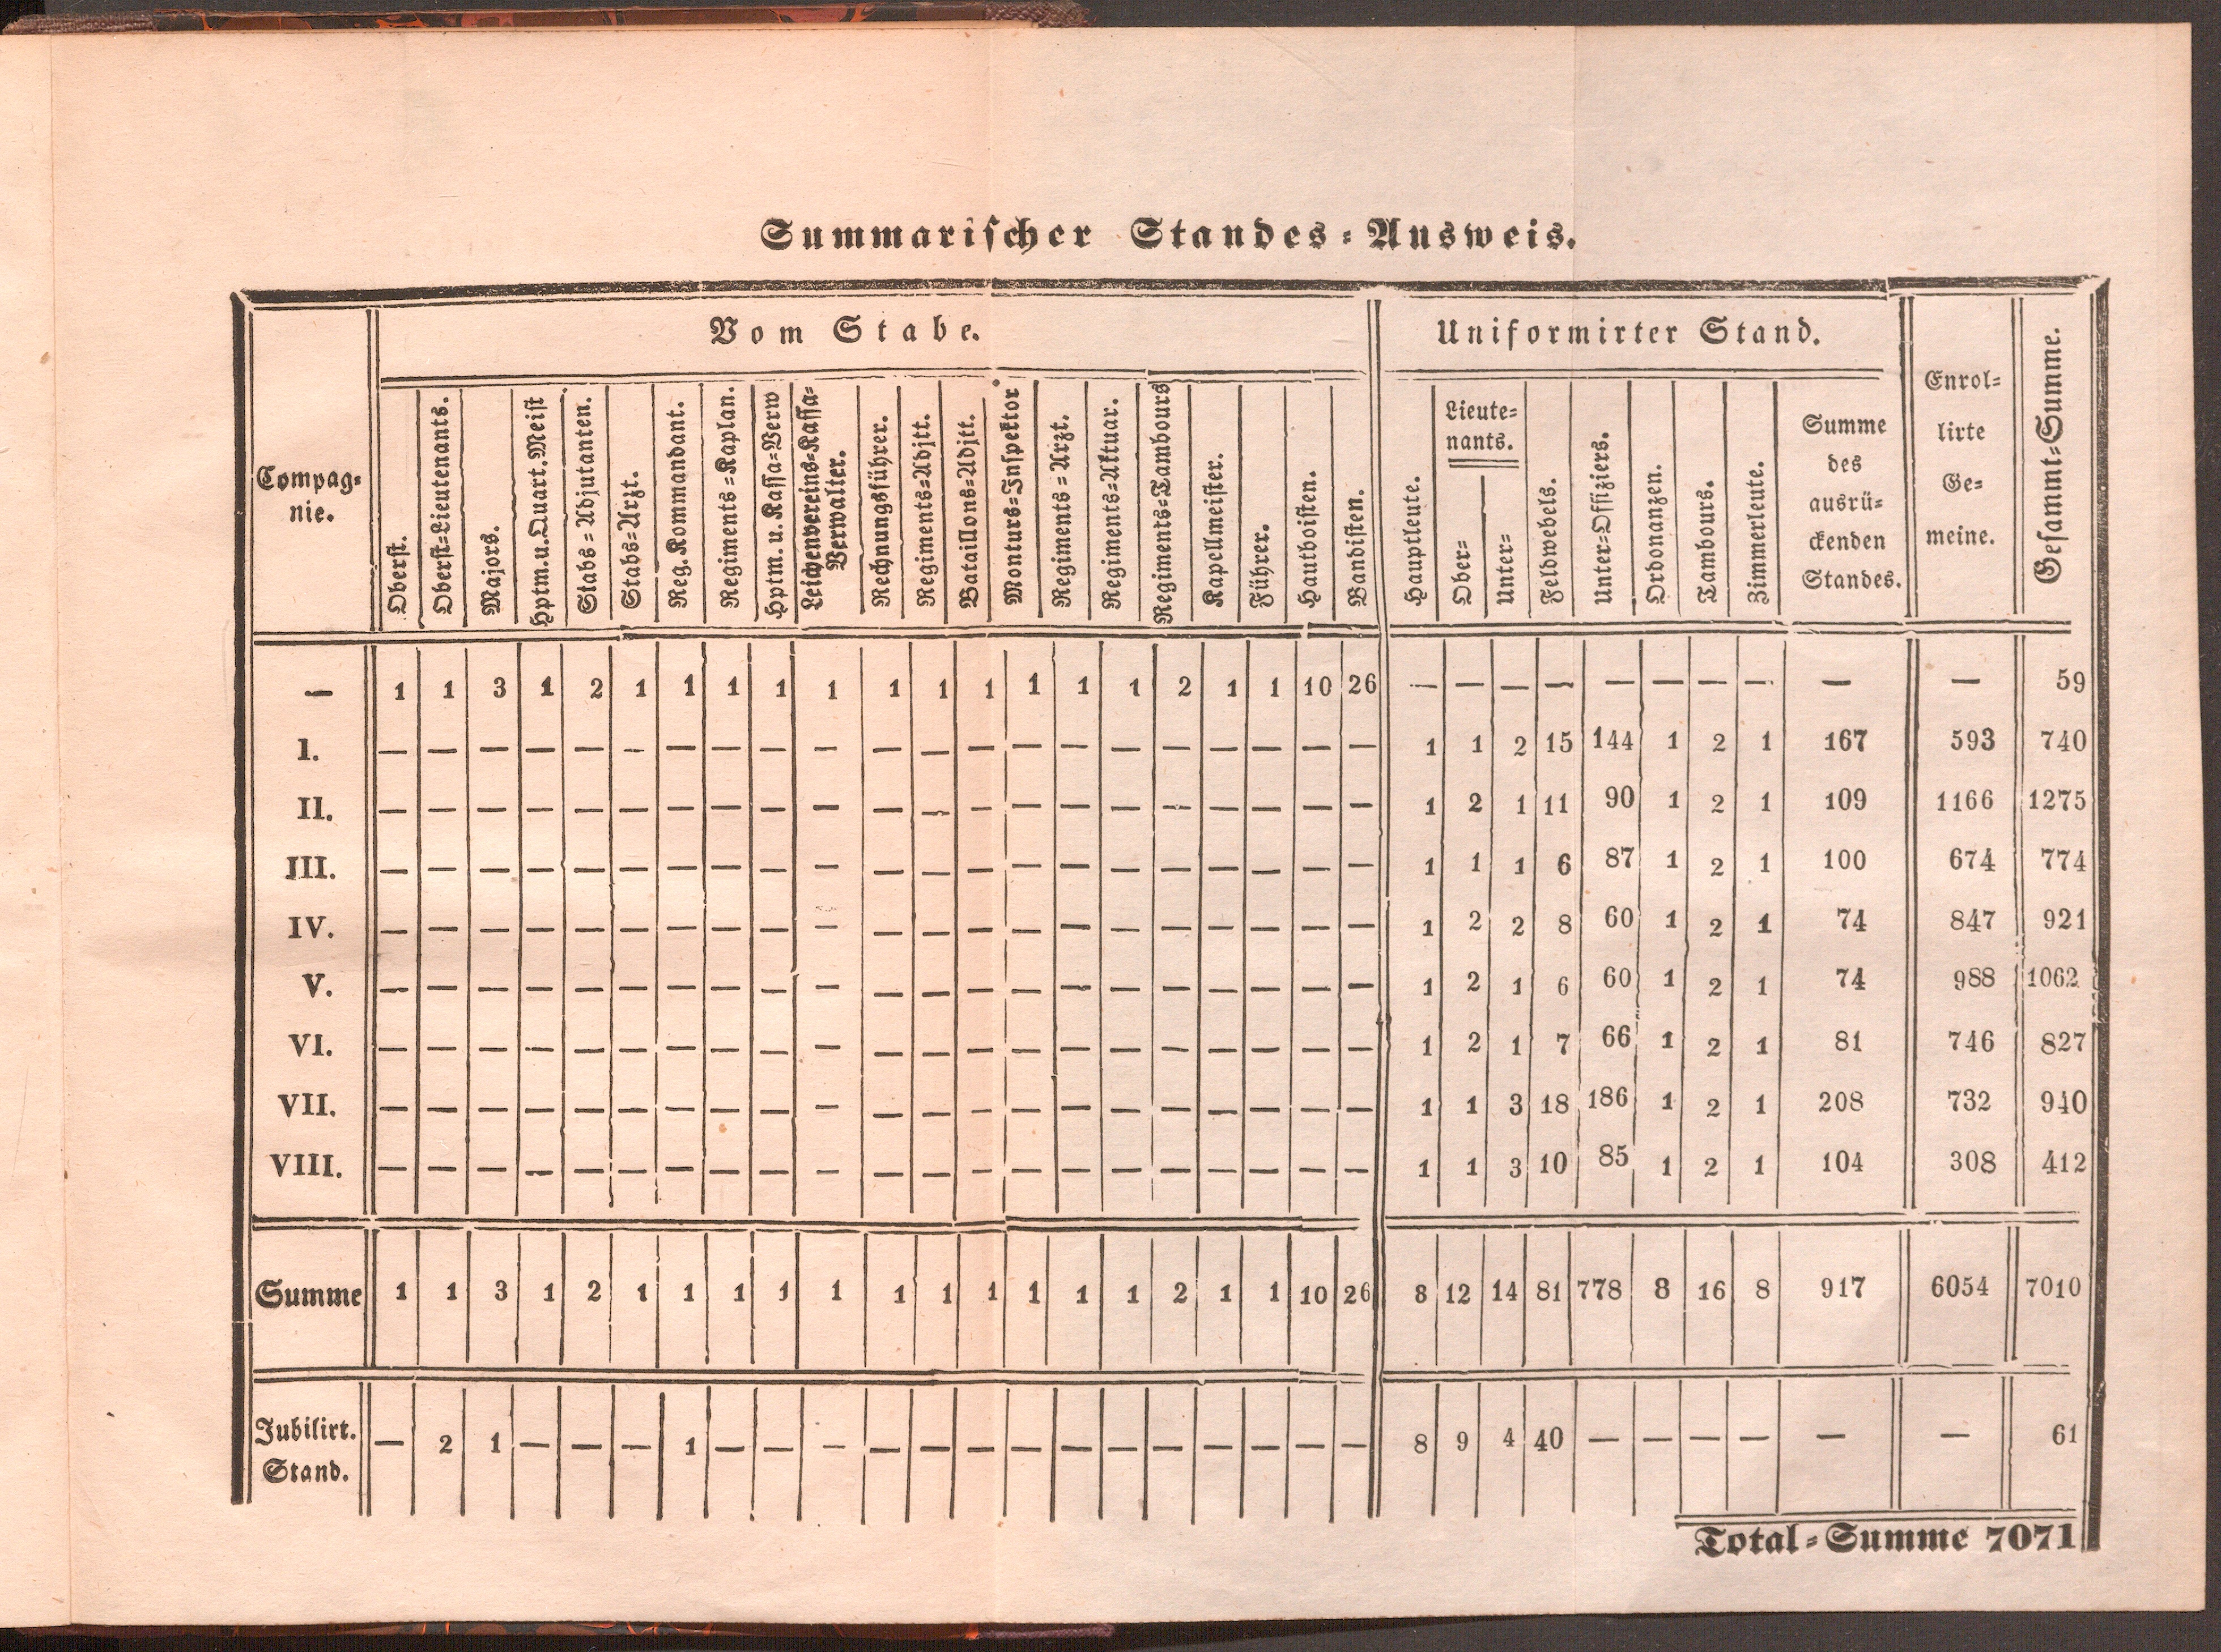 Summarischer Standes-Ausweis.
Compag-
nie.
Vom Stabe.
Uniformirter Stand.
Enrol-
lirte
Ge-
meine.
Gesammt-Summe.
Oberst.
Oberst-Lieutenants.
Majors.
Hptm. u. Quart. Meist
Stabs-Adjutanten.
Stabs-Arzt.
Reg. Kommandant.
Regiments-Kaplan.
Hptm. u. Kassa-Verw
Leichenvereins-Kassa-
Verwalter.
Rechnungsführer.
Regiments-Adjtt.
Bataillons-Adjtt.
Monturs-Inspektor
Regiments-Arzt.
Regiments-Aktuar.
Regiments-Tambours
Kapellmeister.
Führer.
Hautboisten.
Bandisten.
Hauptleute.
Lieute-
nants.
Ober-
Unter-
Feldwebels.
Unter-Offiziers.
Ordonanzen.
Tambours.
Zimmerleute.
Summe
des
ausrü-
ckenden
Standes.
— 1 1 3 1 2 1 1 1 1 1 1 1 1 1 1 1 2 1 1 10 26 — — — — — — — — — — 59
I. — — — — — — — — — — — — — — — — — — — — — 1 1 2 15 144 1 2 1 167 593 740
II. — — — — — — — — — — — — — — — — — — — — — 1 2 1 11 90 1 2 1 109 1166 1275
III. — — — — — — — — — — — — — — — — — — — — — 1 1 1 6 87 1 2 1 100 674 774
IV. — — — — — — — — — — — — — — — — — — — — — 1 2 2 8 60 1 2 1 74 847 921
V. — — — — — — — — — — — — — — — — — — — — — 1 2 1 6 60 1 2 1 74 988 1062
VI. — — — — — — — — — — — — — — — — — — — — — 1 2 1 7 66 1 2 1 81 746 827
VII. — — — — — — — — — — — — — — — — — — — — — 1 1 3 18 186 1 2 1 208 732 940
VIII. — — — — — — — — — — — — — — — — — — — — — 1 1 3 10 85 1 2 1 104 308 412
Summe 1 1 3 1 2 1 1 1 1 1 1 1 1 1 1 1 2 1 1 10 26 8 12 14 81 778 8 16 8 917 6054 7010
Jubilirt.
Stand. — 2 1 — — — 1 — — — — — — — — — — — — — — 8 9 4 40 — — — — — — 61
Total-Summe 7071